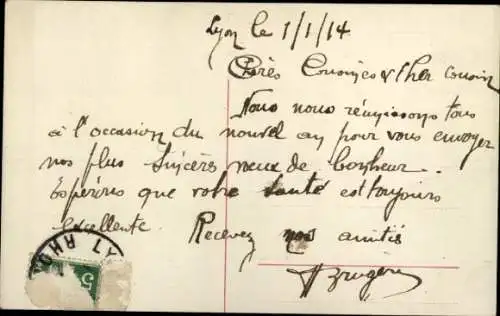 Lyon le 1/1/14
Chères Cousines & Cher cousin
Nous nous réunissons tous
à l'occasion du nouvel an pour vous envoyer
nos plus sincères vœux de bonheur.
Espérons que votre santé est toujours
excellente. Recevez nos amitiés
LY RHÔN
5